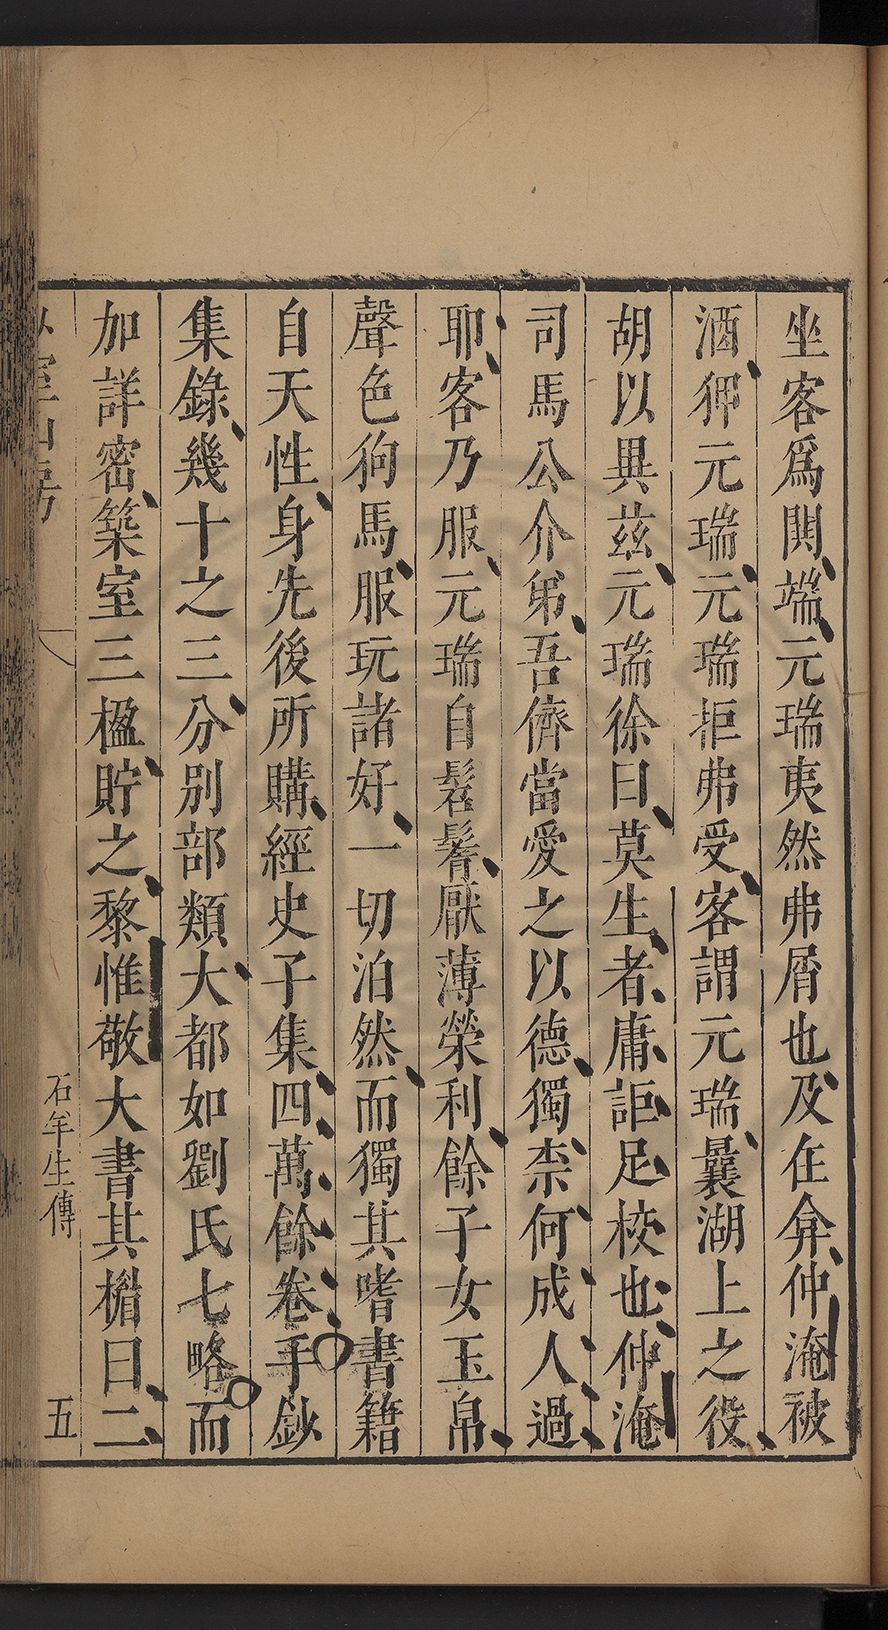 坐客爲関端元瑞夷然弗屑也及在弇仲淹被
酒狎元瑞元瑞拒弗受客謂元瑞曩湖上之役
胡以異茲元瑞徐曰莫生者庸詎足校也仲淹
司馬公介弟吾儕當愛之以德獨柰何成人過
耶客乃服元瑞自髫鬌厭薄榮利餘子女玉帛
聲色狗馬服玩諸好一切泊然而獨其嗜書籍
自天性身先後所購經史子集四萬餘卷手鈔
集錄幾十之三分別部類大都如劉氏七略而
加詳密築室三楹貯之黎惟敬大書其楣曰二
室山房
石羊生傳
五